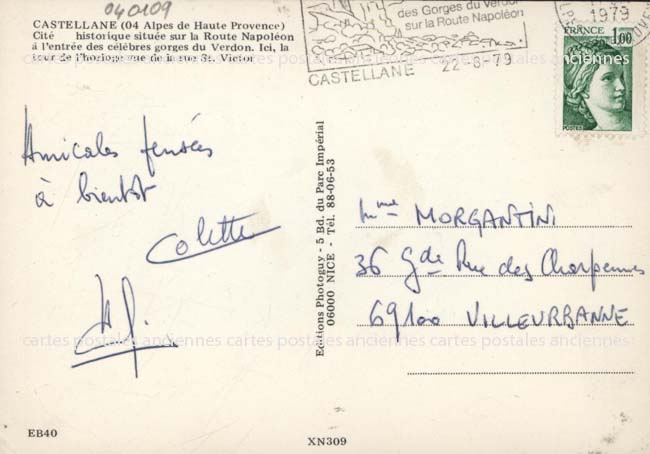 040109
CASTELLANE (04 Alpes de Haute Provence)
Cité historique située sur la Route Napoléon
à l'entrée des célèbres gorges du Verdon. Ici, la
tour de l'horloge vue de la rue St. Victor
des Gorges du Verdon
sur la Route Napoléon
CASTELLANE 22-8-79
1979
FRANCE
1,00
POSTES
Amicales pensées
à bientôt
Colette
Editions Photoguy - 5 Bd. du Parc Impérial
06000 NICE - Tél. 88-06-53
Mme MORGANTINI
36 Gde Rue des Charpennes
69100 VILLEURBANNE
cartes postales anciennes cartes postales anciennes cartes postales anciennes
cartes postales anciennes cartes postales anciennes cartes postales anciennes
EB40
XN309